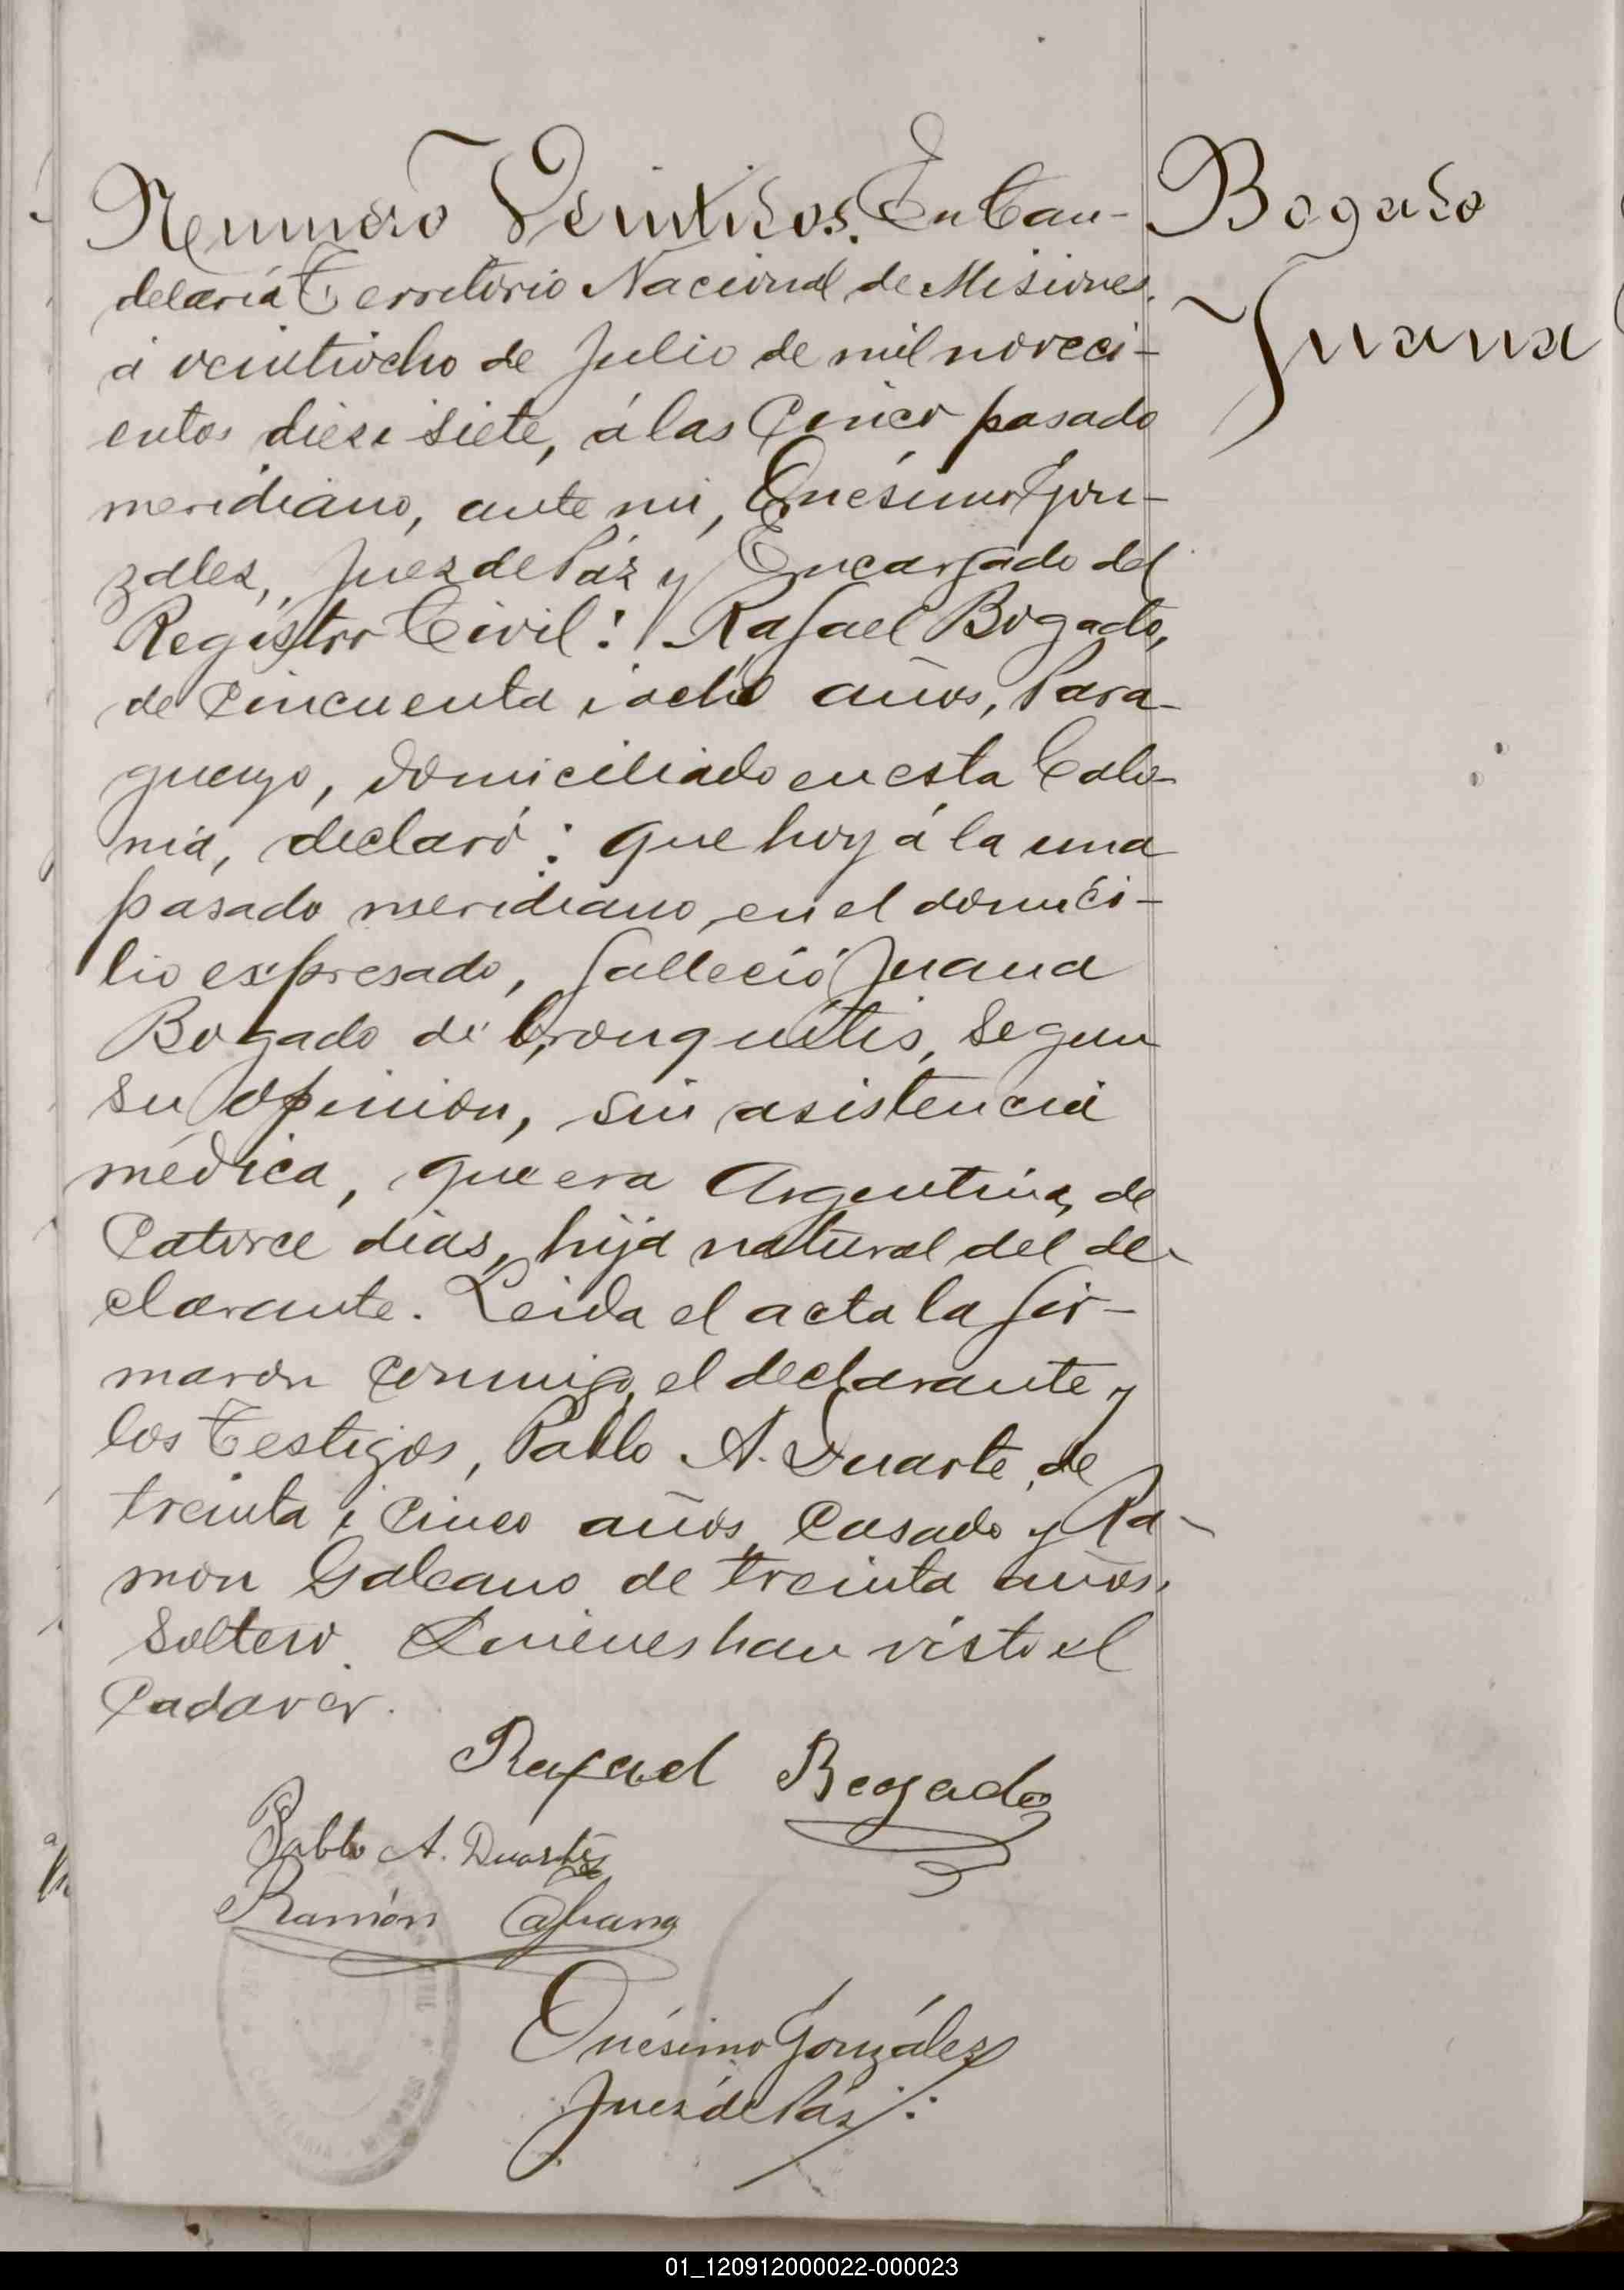 Numero Veintidos. En Can-
delaria Territorio Nacional de Misiones.
á veintiocho de Julio de mil noveci-
entos diez i siete, á las Cinco pasado
meridiano, ante mi, Onésimo Gon-
zalez, Juez de Páz y Encargado del
Registro Civil: Rafael Bogado,
de Cincuenta i ocho años, Para-
guayo, domiciliado en esta Colo-
nia, declaró: que hoy á la una
pasado meridiano, en el domici-
lio expresado, falleció Juana
Bogado de bronquitis, segun
su opinion, sin asistencia
médica, que era Argentina, de
Catorce dias, hija natural del de-
clarante. Leida el acta la fir-
maron Conmigo, el declarante y
los Testigos, Pablo A. Duarte, de
treinta i Cinco años, Casado y Ra-
mon Galeano de treinta años,
Soltero. Quienes han visto el
Cadaver.
Bogado
Juana
Rafael Bogado
Pablo A. Duarte
Ramón
Onésimo González
Juez de Páz
01_120912000022-000023